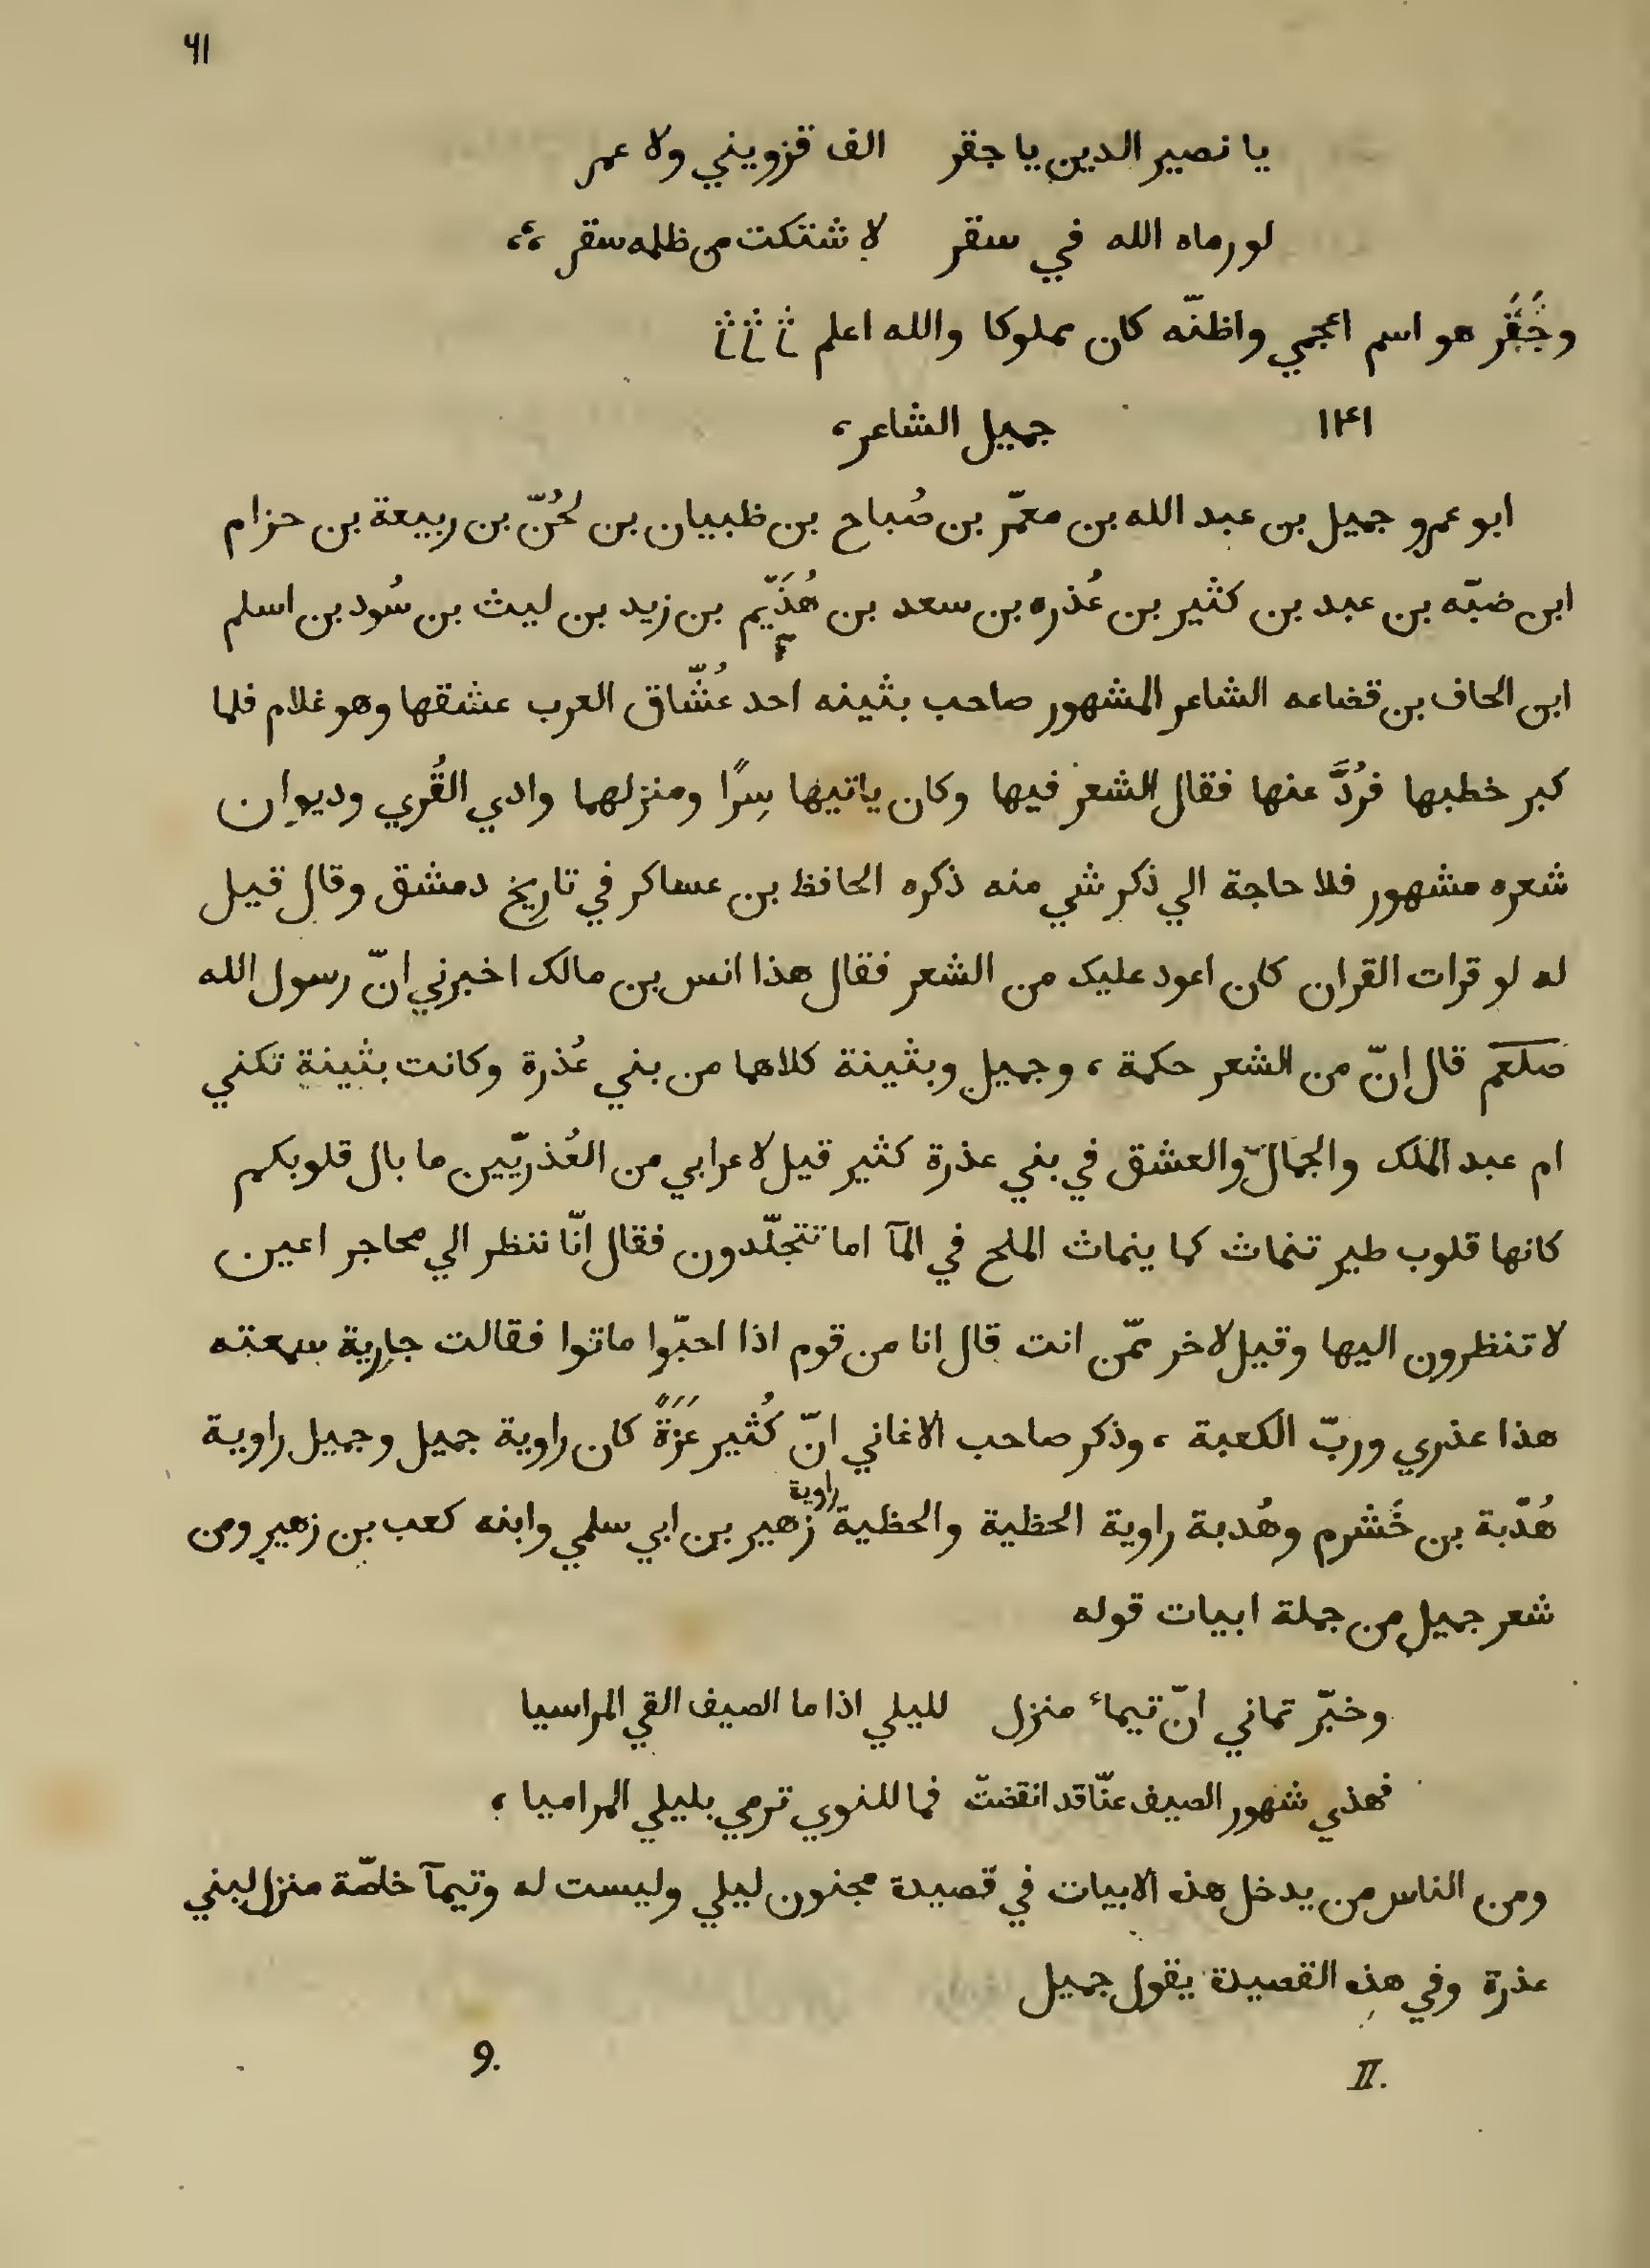 ٦١
يا نصير الدين يا جقر الف قزويني ولا عمر
لو رماه الله في سقر لاشتكت من ظلمه سقر
وجَُقَر هو اسم اعجمي واظنّه كان مملوكا والله اعلم
١٤١ جميل الشاعر،
ابو عمرو جميل بن عبد الله بن معمّر بن صُباح بن ظبيان بن حُنّ بن ربيعة بن حزام
ابن ضبّه بن عبد بن كثير بن عُذره بن سعد بن هُذَيّم بن زيد بن ليث بن سُود بن اسلم
ابن الحاف بن قضاعه الشاعر المشهور صاحب بثينه احد عُشّاق العرب عشقها وهو غلام فلما
كبر خطبها فرُدَّ عنها فقال الشعر فيها وكان ياتيها سِرًا ومنزلهما وادي القُري وديوان
شعره مشهور فلا حاجة الي ذكر شي منه ذكره الحافظ بن عساكر في تاريخ دمشق وقال قيل
له لو قرات القران كان اعود عليك من الشعر فقال هذا انس بن مالك اخبرني انّ رسول الله
صلعم قال انّ من الشعر حكمة ، وجميل وبثينة كلاهما من بني عُذرة وكانت بثينة تكني
ام عبد الملك والجمال والعشق في بني عذرة كثير قيل لاعرابي من العُذريّين ما بال قلوبكم
كانها قلوب طير تنماث كما ينماث الملح في المآ اما تتجلّدون فقال انّا ننظر الي محاجر اعين
لا تنظرون اليها وقيل لاخر ممّن انت قال انا من قوم اذا احبّوا ماتوا فقالت جارية سمعته
هذا عذري وربّ الكعبة ، وذكر صاحب الاغاني انّ كُثير عَزَةً كان راوية جميل وجميل راوية
هُدّبة بن خَشرم وهُدبة راوية الحظية والحظية راوية زهير بن ابي سلمي وابنه كعب بن زهير ومن
شعر جميل من جملة ابيات قوله
وخبّر تماني انّ تيماء منزل لليلي اذا ما الصيف القي المراسيا
فهذي شهور الصيف عنّا قد انقضتّ فما للنوي ترمي بليلي المراميا ،
ومن الناس من يدخل هذه الابيات في قصيدة مجنون ليلي وليست له وتيمآ خاصّة منزل لبني
عذرة وفي هذه القصيدة يقول جميل
II. 9.